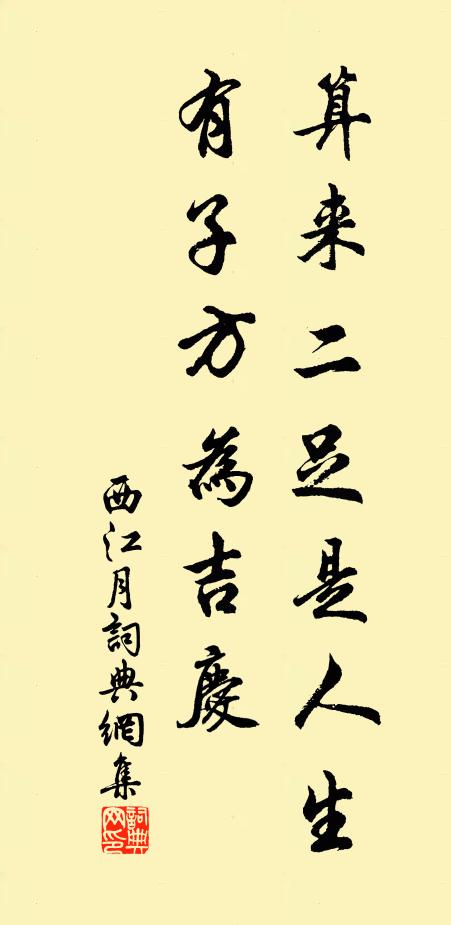 算来二足是人生
有子方為吉慶
西江月詞典網集
詞典网印